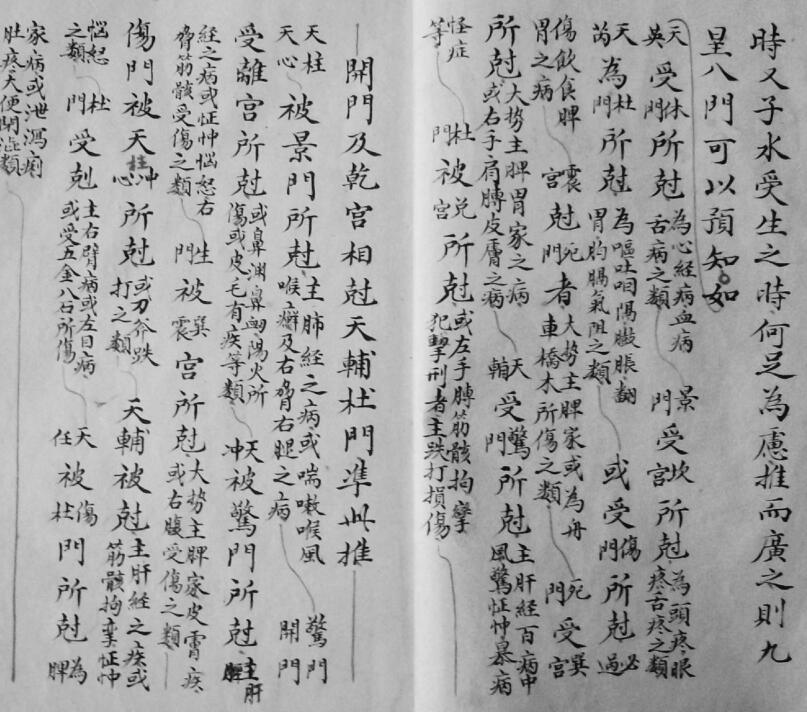 時又子水受生之時何足為慮推而廣之則九
星八門可以預知如
天英受休門所尅為心經病血病舌病之類景門受坎宮所尅為頭疼眼疼舌疼之類
天芮為杜門所尅為嘔吐咽隔臌脹翻胃胸膈氣阻之類或受傷門所尅必過
傷飲食脾胃之病震宮尅死門者大勢主脾家或為舟車橋木所傷之類死門受巽宮
所尅大勢主脾胃家之病或右手肩膊皮膚之病天輔受驚門所尅主肝經百病中風驚怔忡暴病
怪症等杜門被兌宮所尅或左手膊筋骸拘攣犯擊刑者主跌打損傷
開門及乾宮相尅天輔杜門準此推
天柱天心被景門所尅主肺經之病或喘嗽喉風喉癬及右脅右腿之病驚門開門
受離宮所尅或鼻淵鼻衄陽火所傷或皮毛有疾等類天冲被驚門所尅主肝
經之病或怔忡惱怒右脅筋骸受傷之類生門被巽震宮所尅大勢主脾家皮膚疾或右腹受傷之類
傷門被天柱冲心所尅或刀斧跌打之類天輔被尅主肝經之疾或筋骸拘攣怔忡
惱怒之類杜門受剋主右臂病或左目病或受五金八石所傷天任被傷杜門所尅為脾
家病或泄瀉痢肚疼大便閉澁類